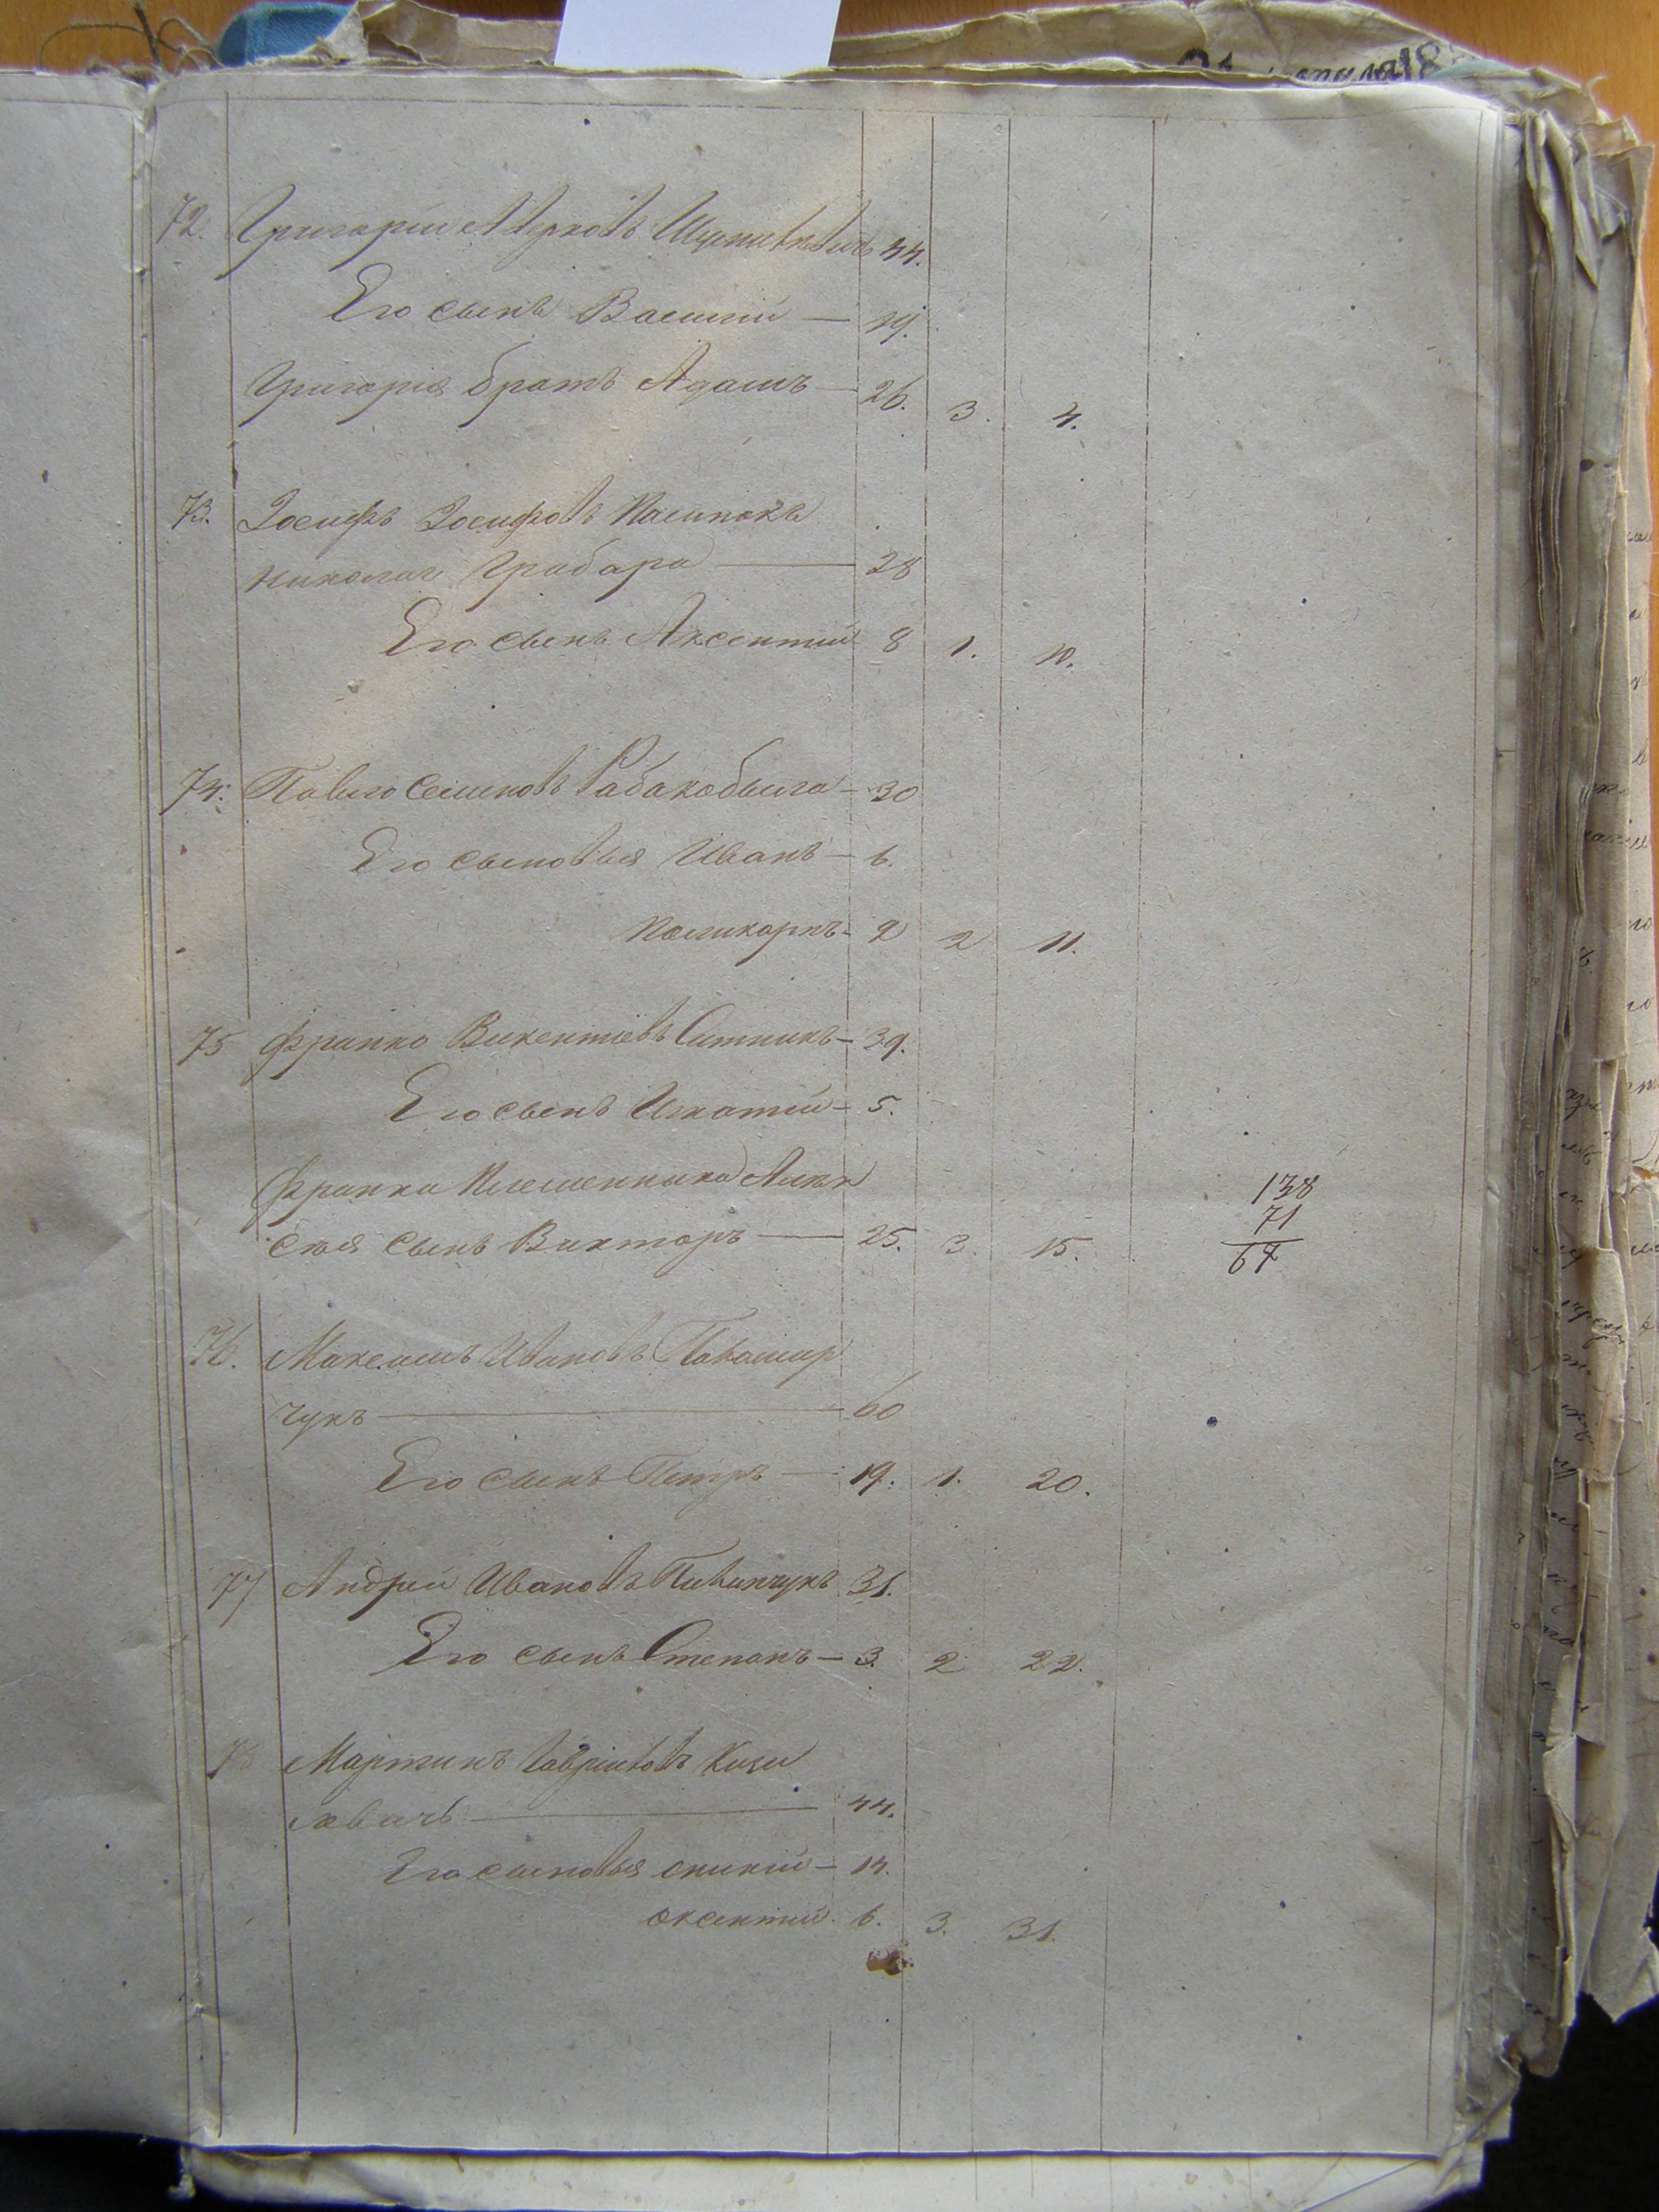 72. Григорій Марковъ 44.
Его сынъ Василій — 19.
Григорія братъ Адамъ — 26. 3. 4.
73. Іосифъ Іосифовъ Пасинокъ
Николай Грабара — 28
Его сынъ Аксентій 8 1. 10.
74. Павло Семеновъ Рабакобыла — 30
Его сыновья Иванъ — 6.
Поликарпъ — 2 2 11.
75 Франко Викентіевъ Ситникъ — 39.
Его сынъ Игнатій — 5.
Франка Племенника
сѣя сынъ Викторъ — 25. 3. 15.
138
71
67
76. Максимъ Ивановъ
чукъ — 60
Его сынъ Петръ — 19. 1. 20.
77 Андрей Ивановъ Пивинчукъ 31.
Его сынъ Степанъ — 3. 2 22.
78 Мартинъ Гавриловъ Кизи
ловичъ — 44.
Его сыновья — 14.
оксентій. 6. 3. 31.